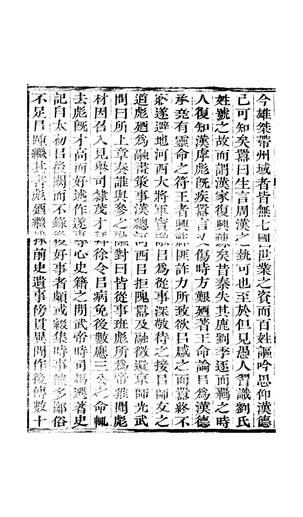 今雄桀帶州域者皆無七國世業之資而百姓謳吟思仰漢德
已可知矣囂曰生言周漢之埶可也至於但見愚人習識劉氏
姓號之故而謂漢家復興疎矣昔秦失其鹿劉季逐而羈之時
人復知漢虖彪旣疾囂言又傷時方艱廼著王命論㠯爲漢德
承堯有靈命之符王者興祚非詐力所致欲㠯感之而囂終不
寤遂避地河西大將軍竇融㠯爲從事深敬待之接㠯師友之
道彪廼爲融畫策事漢總西河㠯拒隗囂及融徵還京師光武
問曰所上章奏誰與參之融對曰皆從事班彪所爲帝雅聞彪
材因召入見舉司隸茂才拜徐令㠯病免後數應三公之命輒
去彪旣才高而好述作遂專心史籍之閒武帝時司馬遷著史
記自太初㠯後闕而不錄後好事者頗或綴集時事然多鄙俗
不足㠯踵繼其書彪廼繼採前史遺事傍貫異聞作後傳數十